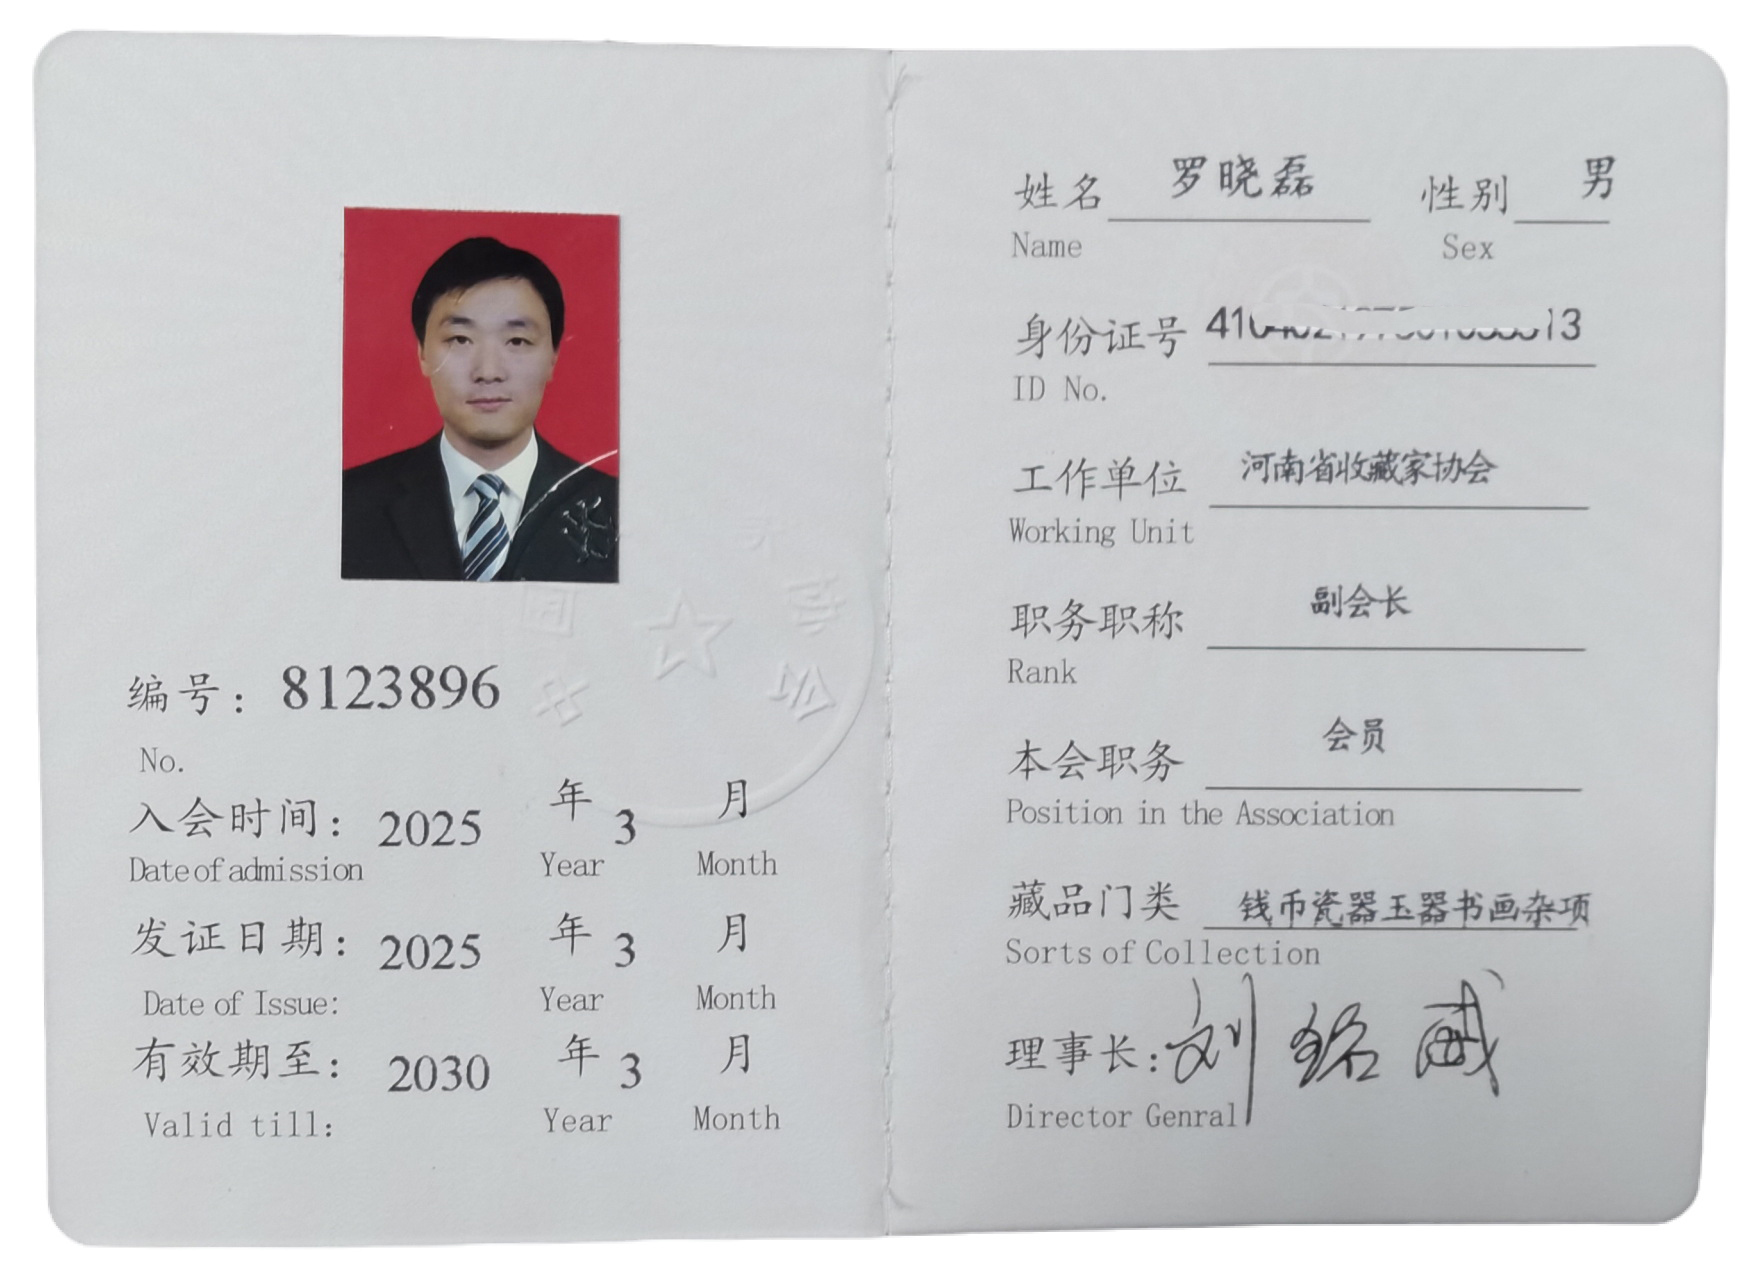 编号：8123896
No.
入会时间：2025年3月
Date of admission Year Month
发证日期：2025年3月
Date of Issue: Year Month
有效期至：2030年3月
Valid till: Year Month
姓名 罗晓磊 性别 男
Name Sex
身份证号
ID No.
工作单位 河南省收藏家协会
Working Unit
职务职称 副会长
Rank
本会职务 会员
Position in the Association
藏品门类 钱币瓷器玉器书画杂项
Sorts of Collection
理事长：刘铭威
Director Genral